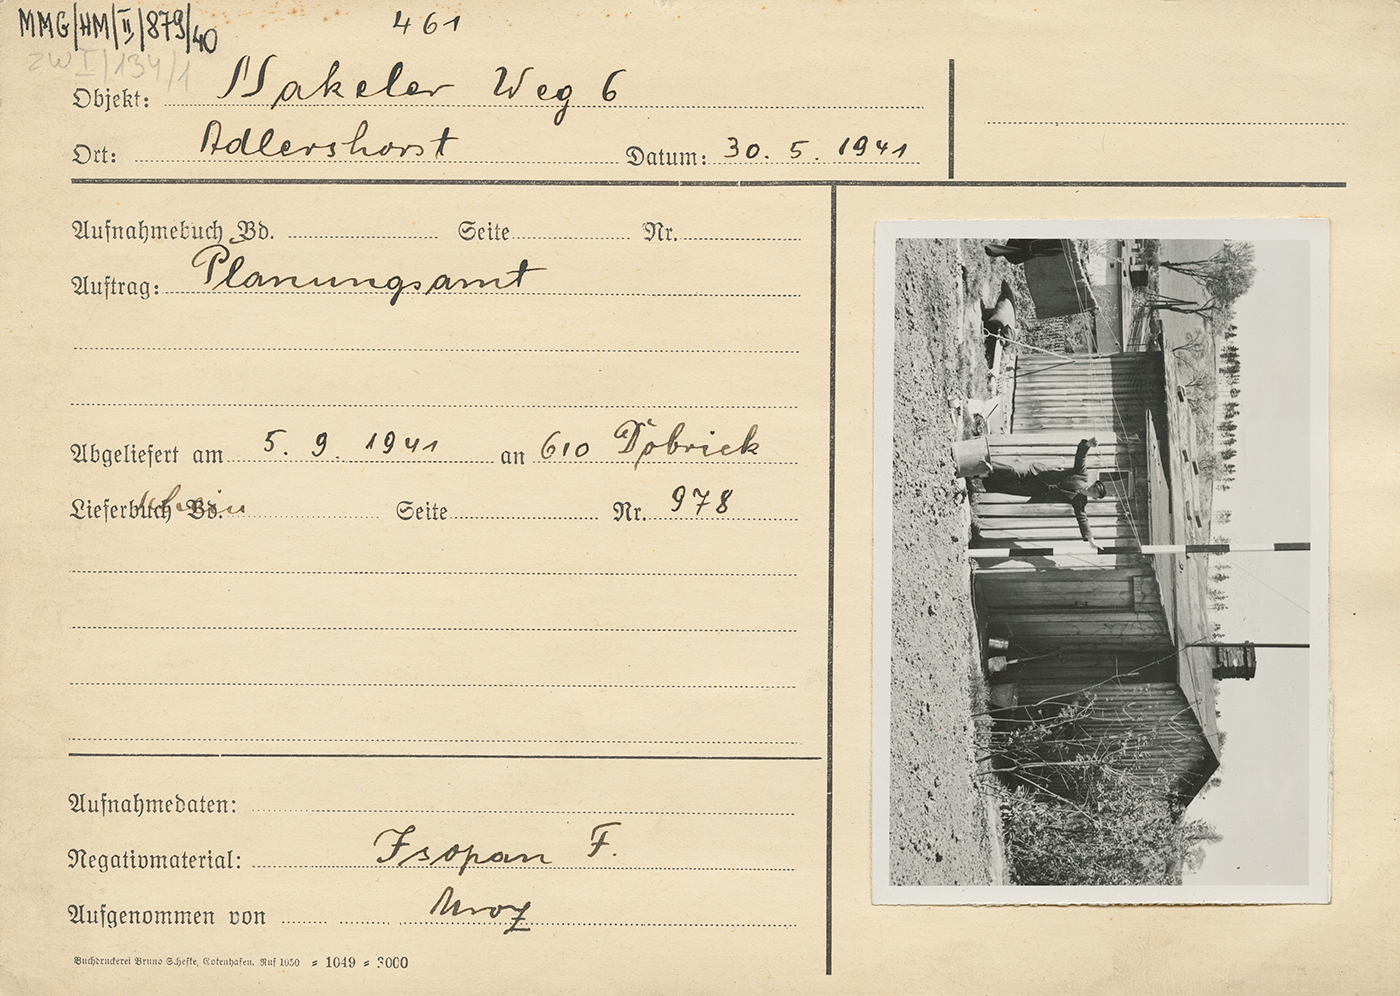 MMG/HM/II/879/40
461
ZW I/134/1
Objekt: Makeler Weg 6
Ort: Adlershorst Datum: 30. 5. 1941
Aufnahmebuch Bd. Seite Nr.
Auftrag: Planungsamt
Abgeliefert am 5. 9. 1941 an 610 Döbrick
Lieferbuch Bd. Seite Nr. 978
Aufnahmedaten:
Negativmaterial: Isopan F.
Aufgenommen von Mroz
Buchdruckerei Bruno Schefke, Gotenhafen. Ruf 1050 = 1049 = 3000